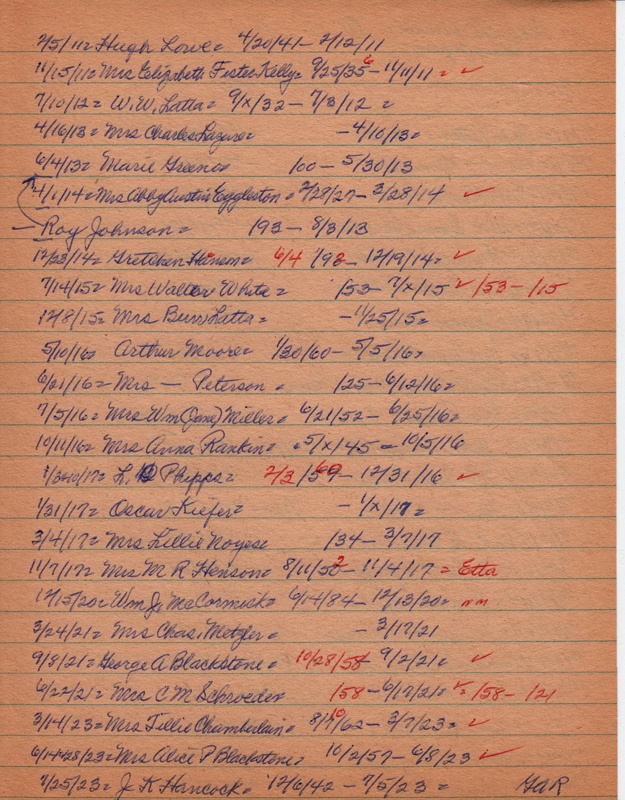 2/5/11 = Hugh Lowe = 4/20/41 - 2/12/11
11/15/11 = Mrs Elizabeth Foster Kelly = 9/25/35 6 - 11/11/11 = ✓
7/10/12 = W. W. Latta = 9/x/32 - 7/8/12 =
4/16/13 = Mrs Charles = - 4/10/13 =
6/4/13 = Marie Greene = /00 - 5/30/13
4/1/14 = Mrs Abby Austin Eggleston = 2/28/27 - 3/28/14 ✓
- Roy Johnson = /93 - 8/3/13
12/23/14 = Gretchen Hanson = 6/4 /92 - 12/19/14 = ✓
7/14/15 = Mrs Walter White = /53 - 7/x/15 ✓ /53 - /15
12/8/15 = Mrs Burr Latta = - 11/25/15 =
5/10/16 = Arthur Moore = 1/30/60 - 5/5/16 =
6/21/16 = Mrs — Peterson = /25 - 6/12/16 =
7/5/16 = Mrs Wm (Jane) Miller = 6/21/52 - 6/25/16 =
10/11/16 = Mrs Anna Rankin = 5/x/45 = 10/5/16
L. Phipps = 2/3 /59 60 - 12/31/16 ✓
1/31/17 = Oscar Kiefer = - 1/x/17 =
3/4/17 = Mrs Lillie Noyes = /34 - 3/7/17
11/7/17 = Mrs M R Henson = 8/11/50 2 - 11/4/17 = Etta
12/15/20 = Wm J. McCormick = 6/14/84 - 12/13/20 = nm
3/24/21 = Mrs Chas. Metzler = - 3/17/21
9/8/21 = George A Blackstone = 10/28/58 - 9/2/21 = ✓
6/22/21 = Mrs C M Schroeder /58 - 6/17/21 = ✓ = /58 - /21
3/14/23 = Mrs Tillie Chamberlain = 8/10/62 - 3/7/23 = ✓
6/14+28/23 = Mrs Alice P Blackstone = 10/2/57 - 6/8/23 ✓
7/25/23 = J. K Hancock = 12/6/42 - 7/5/23 = GAR